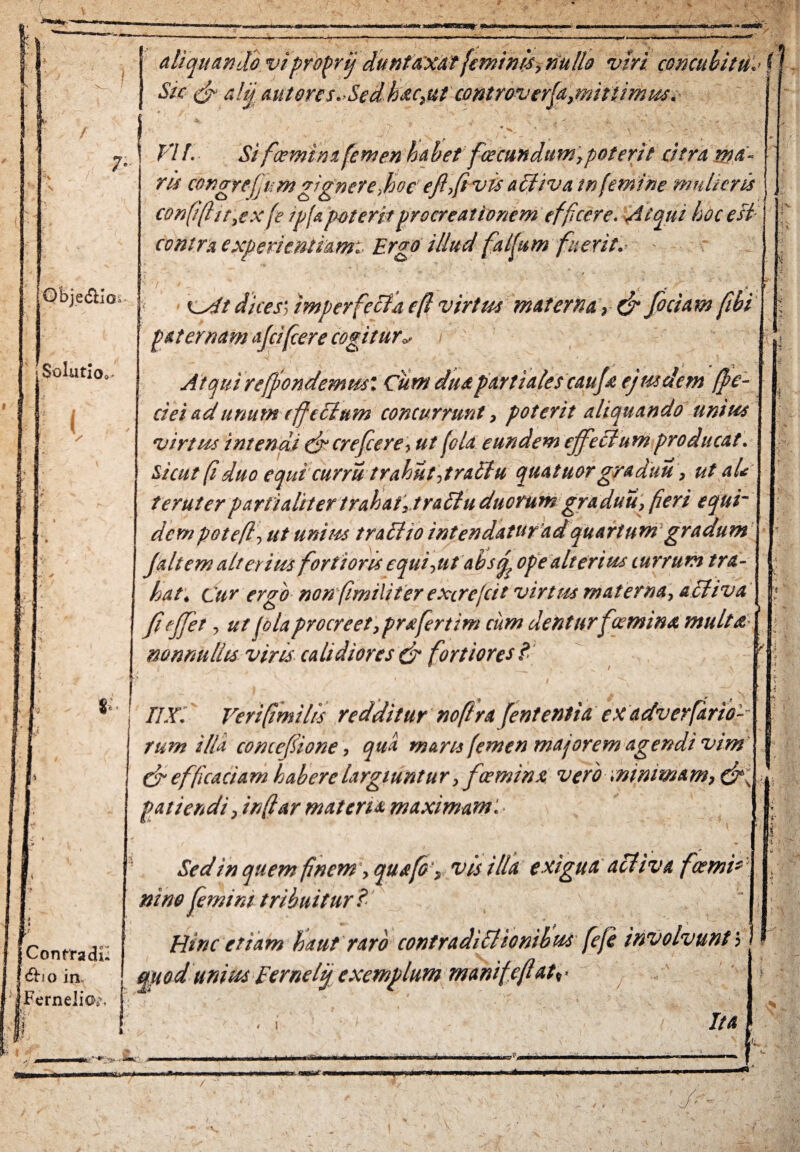 aliquando vi proprij duntaxat feminis, nullo viri concubitu.
Sic & alij autores. Sed hæc, ut controverſa, mittimus.
7.
VII. Si fœmina ſemen habet fœcundum, poterit citra ma-
ris congreſſum gignere, hoc eſt, ſi vis activa in ſemine mulieris
conſiſtit, ex ſe ipſa poterit procreationem efficere. Atqui hoc est
contra experientiam: Ergo illud falſum fuerit.
Objectio.
At dices; imperfecta eſt virtus materna, & ſociam ſibi
paternam aſciſcere cogitur.
Solutio.
Atqui reſpondemus: Cùm duæ partiales cauſæ ejusdem ſpe-
ciei ad unum effectum concurrunt, poterit aliquando unius
virtus intendi & creſcere, ut ſola eundem effectum producat.
Sicut ſi duo equi currū trahūt, tractu quatuor graduū, ut al-
teruter partialiter trahat, tractu duorum graduū, fieri equi-
dem poteſt, ut unius tractio intendatur ad quartum gradum
ſaltem alterius fortioris equi, ut absq; ope alterius currum tra-
hat. Cur ergò non ſimiliter excreſcit virtus materna, activa
ſi eſſet, ut ſola procreet, præſertim cùm dentur fœminæ multæ
nonnullis viris calidiores & fortiores?
8.
IIX. Veriſimilis redditur noſtra ſententia ex adverſario-
rum illâ conceſſione, quâ maris ſemen majorem agendi vim
& efficaciam habere largiuntur, fœminæ verò minimam, &
patiendi, inſtar materiæ maximam.
Sed in quem finem, quæſo, vis illa exigua activa fœmi-
nino ſemini tribuitur?
Contradi-
ctio in
Fernelio.
Hinc etiam haut rarò contradictionibus ſeſe involvunt;
quod unius Fernelij exemplum manifeſtat.
Ita